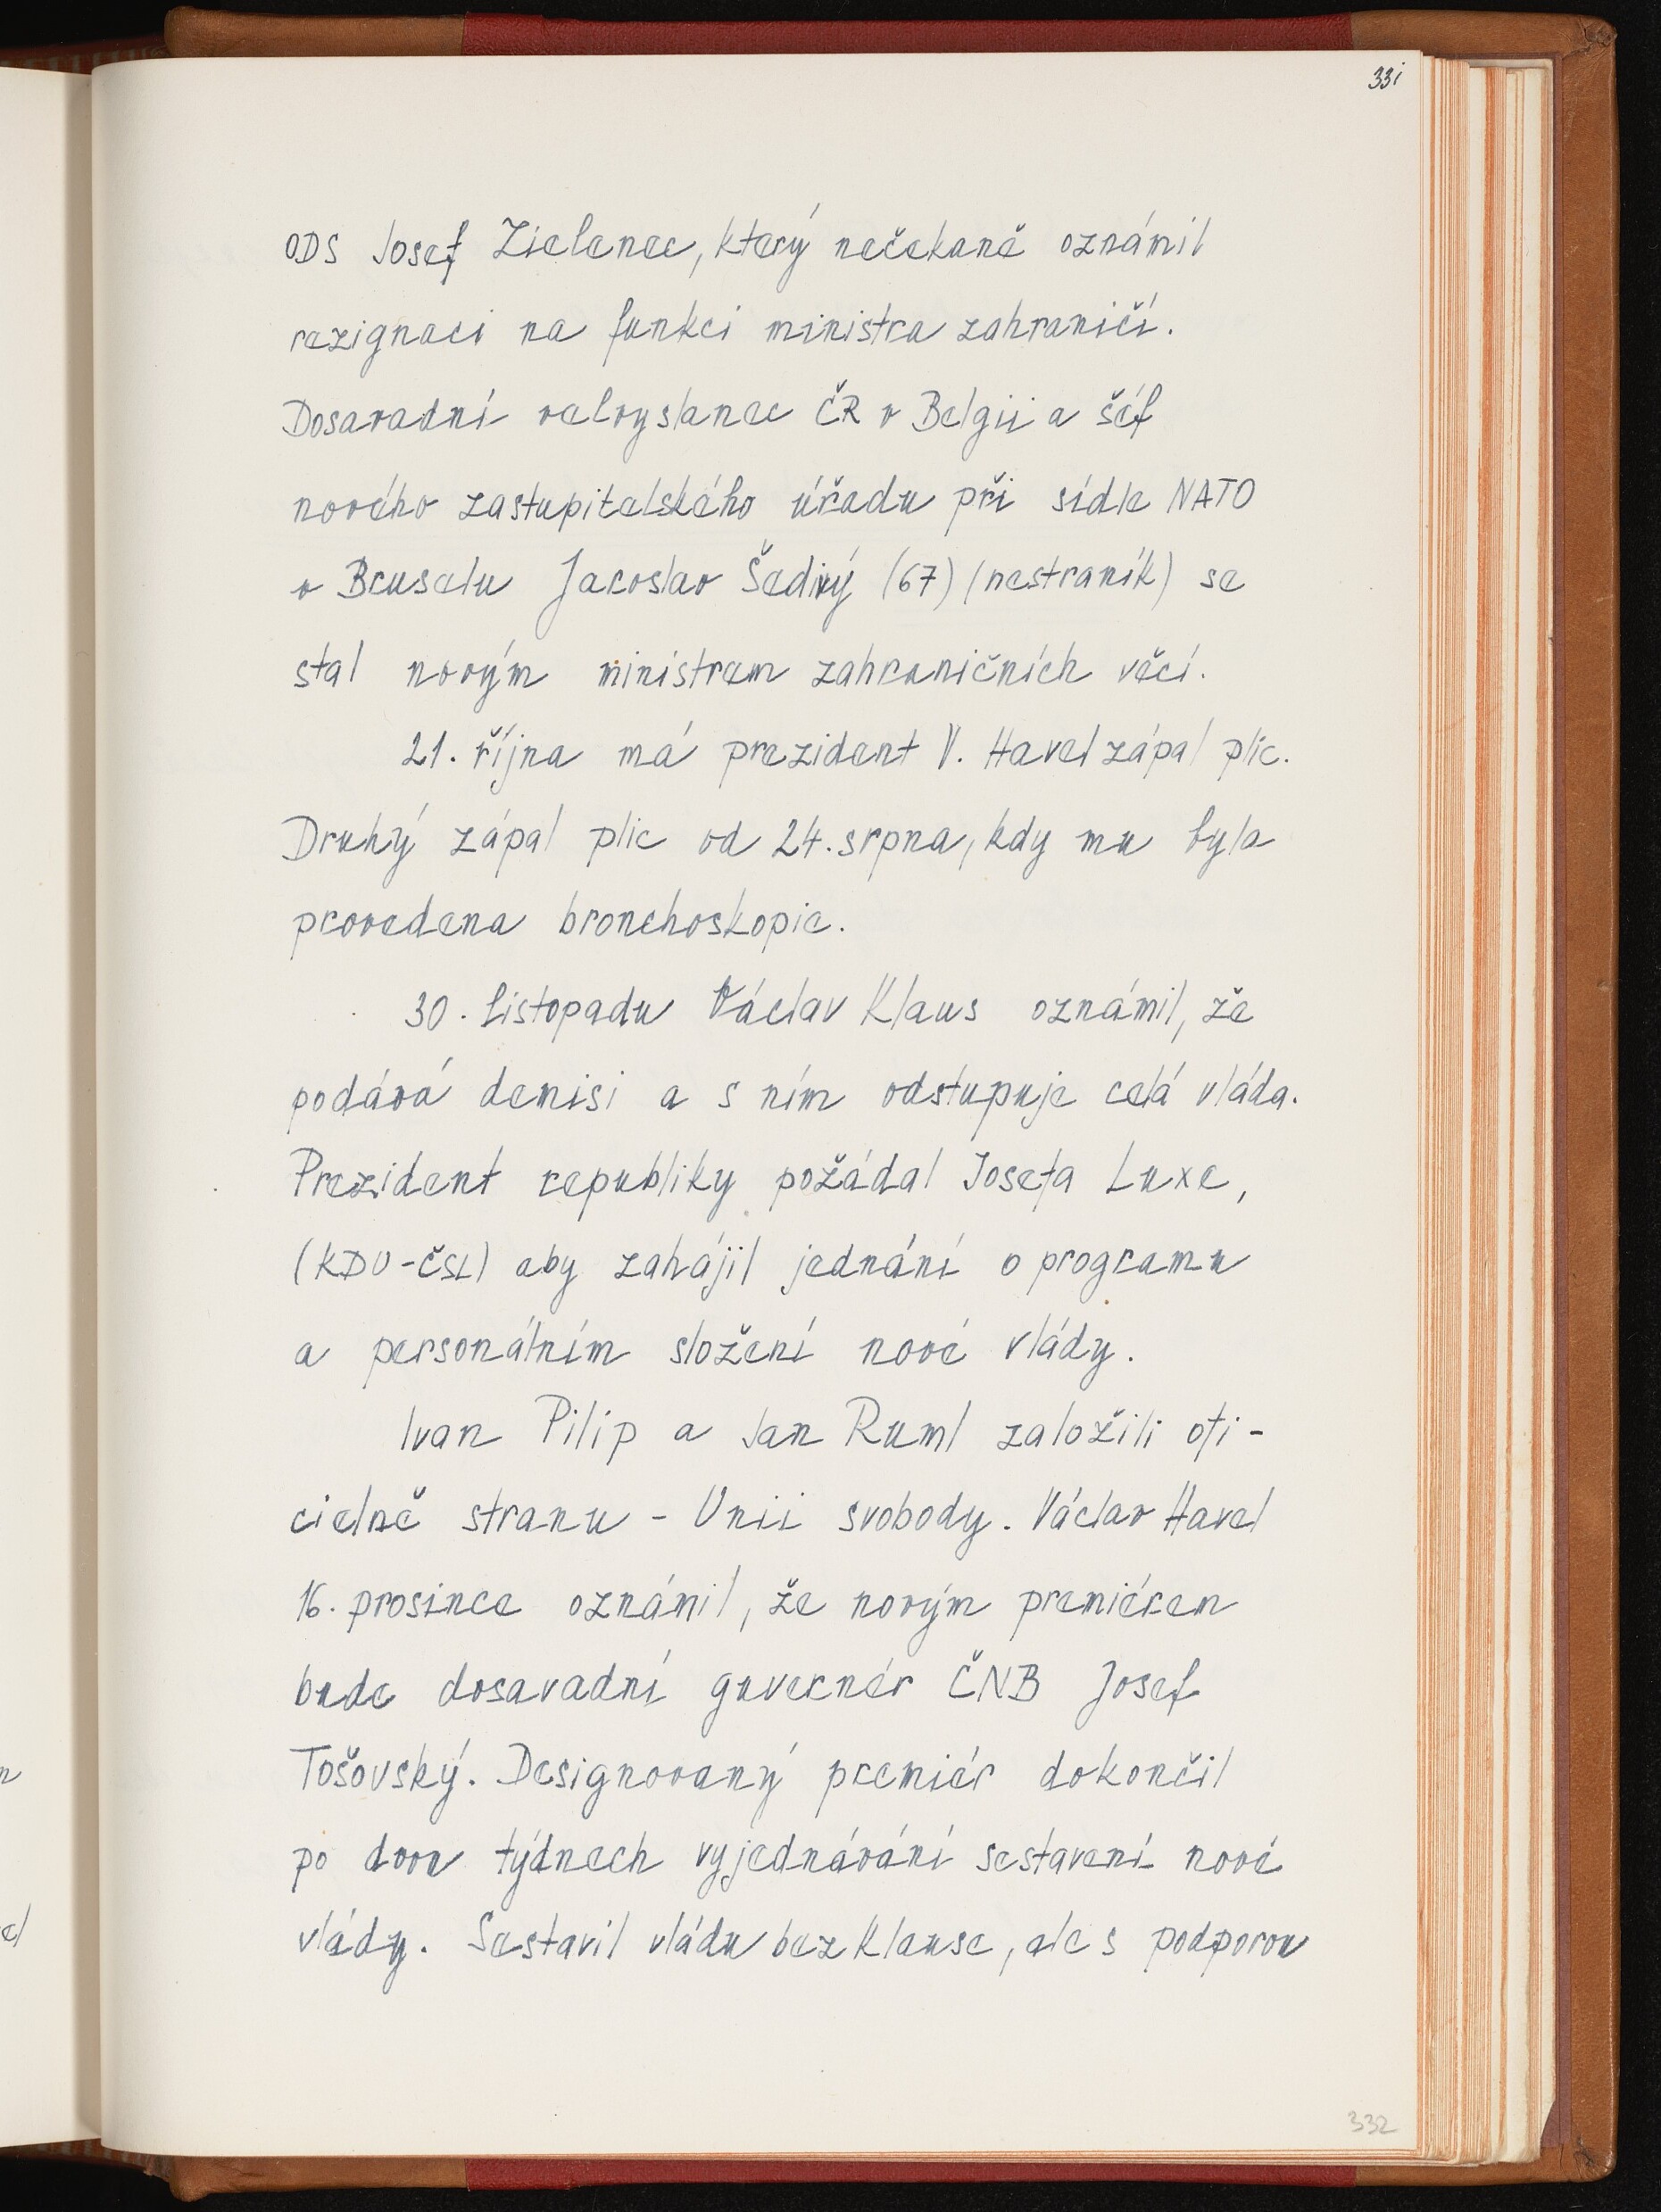 331
ODS Josef Zielenec, který nečekaně oznámil
rezignaci na funkci ministra zahraničí.
Dosavadní velvyslanec ČR v Belgii a šéf
nového zastupitelského úřadu při sídle NATO
v Bruselu Jaroslav Šedivý (67) (nestraník) se
stal novým ministrem zahraničních věcí.
21. října má prezident V. Havel zápal plic.
Druhý zápal plic od 24. srpna, kdy mu byla
provedena bronchoskopie.
30. listopadu Václav Klaus oznámil, že
podává demisi a s ním odstupuje celá vláda.
Prezident republiky požádal Josefa Luxe,
(KDU-ČSL) aby zahájil jednání o programu
a personálním složení nové vlády.
Ivan Pilip a Jan Ruml založili ofi-
cielně stranu - Unii svobody. Václav Havel
16. prosince oznámil, že novým premiérem
bude dosavadní guvernér ČNB Josef
Tošovský. Designovaný premiér dokončil
po dvou týdnech vyjednávání sestavení nové
vlády. Sestavil vládu bez Klause, ale s podporou
332